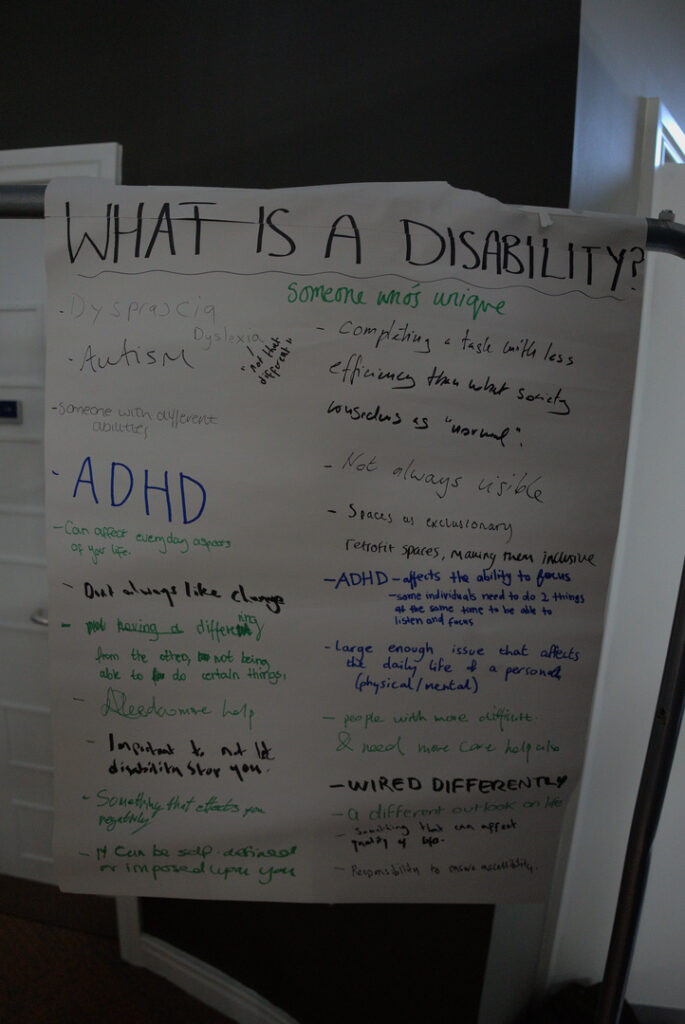 WHAT IS A DISABILITY?
someone who's unique
- Dyspraxia
Dyslexia
"not that
different"
- Autism
- someone with different
abilities
- ADHD
- Can affect everyday aspects
of your life.
- Don't always like change
- not having a differening
from the other, not being
able to do certain things,
- Needs more help
- Important to not let
disability stop you.
- Something that effects you
negatively
- It can be self-defined
or imposed upon you
- Completing a task with less
efficiency than what society
considers as "normal".
- Not always visible
- Spaces as exclusionary
retrofit spaces, making them inclusive
- ADHD - affects the ability to focus
- some individuals need to do 2 things
at the same time to be able to
listen and focus
- Large enough issue that affects
the daily life of a person
(physical/mental)
- people with more difficult
& need more care help also
- WIRED DIFFERENTLY
- a different outlook on life
- Something that can affect
quality of life.
- Responsibility to ensure accessibility.